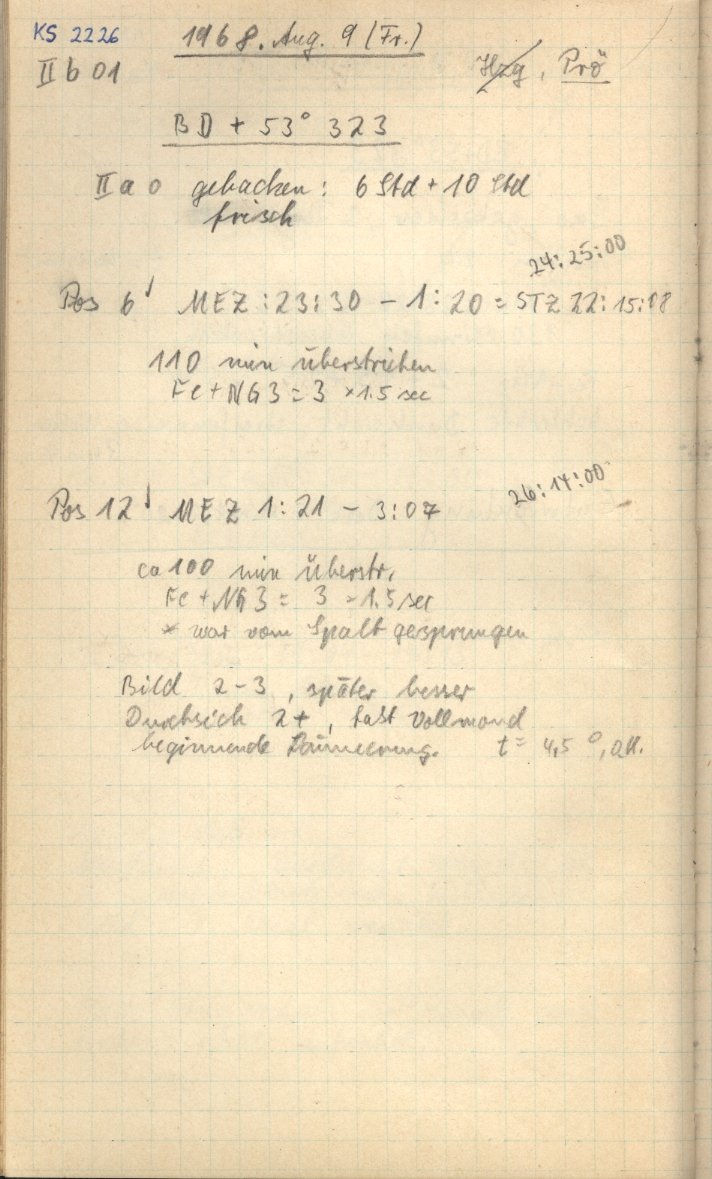 KS 2226
1968. Aug. 9 (Fr.)
II b 01
Hzg, Prö
BD + 53° 323
II a 0 gebacken: 6 Std + 10 Std
frisch
24:25:00
Pos 6 MEZ: 23:30 - 1:20 = STZ 22:15:08
110 min überstrichen
Fe + NG 3 = 3 × 1.5 sec
26:14:00
Pos 12 MEZ 1:21 - 3:07
ca 100 min überstr.
Fe + NG 3 = 3 × 1.5 sec
* war vom Spalt gesprungen
Bild 2-3, später besser
Durchsich 2+, fast Vollmond
beginnende Dämmerung. t = 4,5°,